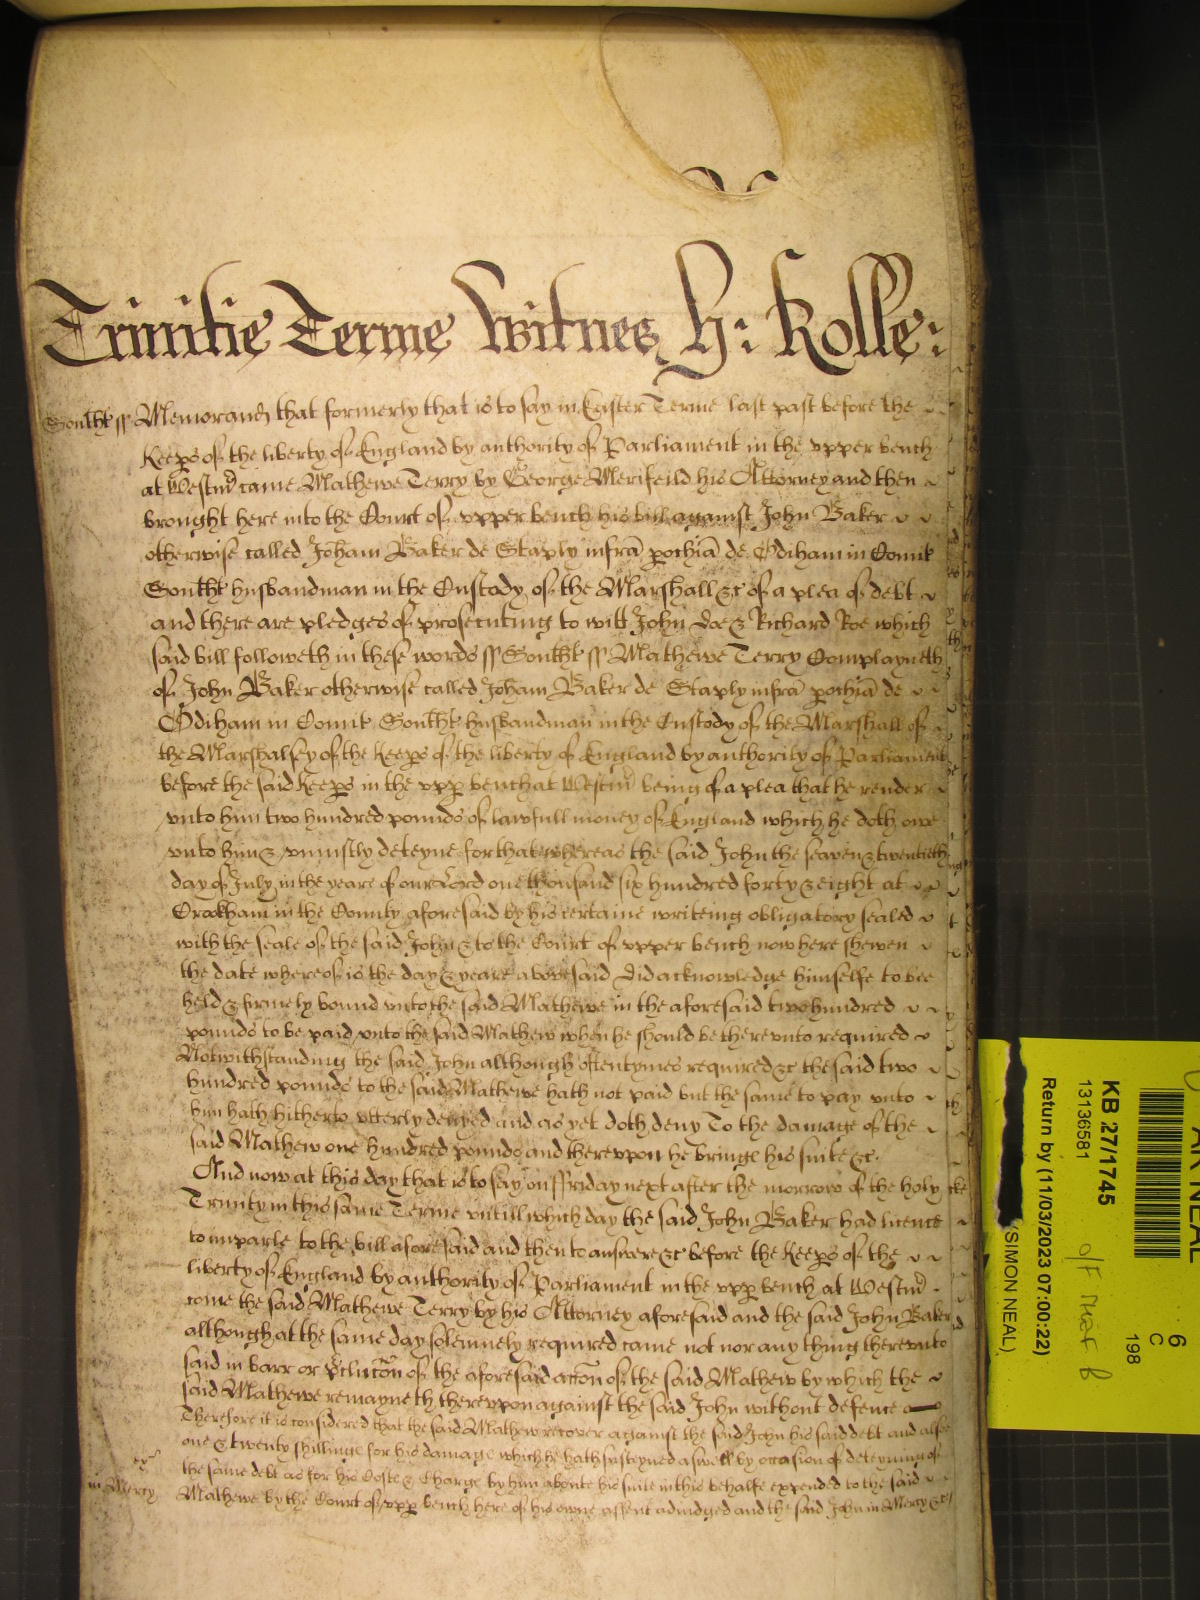 Trinitie Terme Witnes H: Rolle:
Southt ss Memorand that formerly that is to say in Easter Terme last past before the
Keeps of the liberty of England by authority of Parliament in the upper bench
at Westm came Mathewe Terry by George Merifeild his Attorney and then
brought here into the Court of upper bench his bill against John Baker
otherwise called Joham Baker de Staply infra pochia de Odiham in Comit
Southt husbandman in the Custody of the Marshall &c of a plea of debt
and there are pledges of prosecuting to witt John Doe & Richard Roe which
said bill followeth in these words ss Southt ss Mathewe Terry Complayneth
of John Baker otherwise called Joham Baker de Staply infra pochia de
Odiham in Comit Southt husbandman in the Custody of the Marshall of
the Marshalsey of the Keeps of the liberty of England by authority of Parliament
before the said Keeps in the upp bench at Westm being of a plea that he render
unto him two hundred pounds of lawfull money of England which he doth owe
unto him & uniustly deteyne for that whereas the said John the seaven & twentieth
day of July in the yeare of our Lord one thousand six hundred forty & eight at
Crookham in the County aforesaid by his certaine writeing obligatory sealed
with the seale of the said John & to the Court of upper bench now here shewen
the date whereof is the day & yeare abovesaid did acknowledge himselfe to bee
held & firmely bound unto the said Mathewe in the aforesaid two hundred
pounds to be paid unto the said Mathew when he should be thereunto required
Notwithstanding the said John although oftentymes required &c the said two
hundred pounds to the said Mathewe hath not paid but the same to pay unto
him hath hitherto utterly denyed and as yet doth deny To the damage of the
said Mathew one hundred pounds and thereupon he bringe his suite &c
And now at this day that is to say on ffriday next after the morrow of the holy
Trinity in this same Terme untill which day the said John Baker had licence
to imparle to the bill aforesaid and then to answere &c before the Keeps of the
liberty of England by authority of Parliament in the upp bench at Westm
come the said Mathewe Terry by his Attorney aforesaid and the said John Baker
although at the same day solemnely required came not nor any thing thereunto
said in barr or pclucon of the aforesaid accon of the said Mathew by which the
said Mathewe remayneth thereupon against the said John without defence
Therefore it is considered that the said Mathew recover against the said John his said debt and alsoe
one & twenty shillinge for his damage which he hath susteyned aswell by occasion of deteyning of
the same debt as for his Coste & Charge by him aboute his suite in this behalfe expended to the said
in Mercy Mathewe by the Court of upp bench here of his owne assent adiudged and the said John in Mercy &c
KB 27/1745
13136581
Return by (11/03/2023 07:00:22)
(SIMON NEAL)
6
C
198